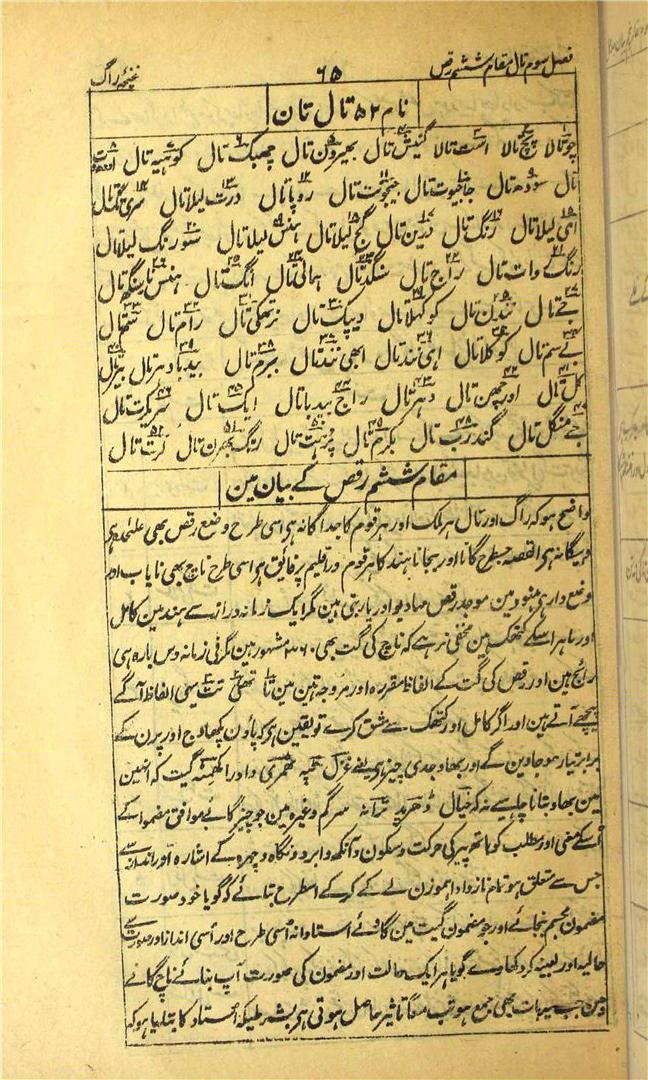 فصل سوم تال مقام ششم رقص ۶۵ غنچۂ راگ
نام ۵۲ تال تان
چوتالا پنچ تالا اشت تالا گنیش تال بھیرون تال چھپک تال کوتہیہ تال
تال سودھ تال جاجیوت تال تال روپا تال درت لیلا تال سری تال
ای لیلا تال رنگ تال درپن تال گج لیلا تال ہنس لیلا تال سورنگ لیلا تال
رنگ وات تال راج تال سنگد تال تال انگ تال ہنس نا ینگھ تال
جے تال نندین تال کوکہلا تال دیپک تال نرتھکی تال رام تال تال
بے سم تال کوکلا تال ای نند تال ابھی نند تال برم تال بید بادہر تال
کل تال اور چھن تال دہر تال راج بیدیا تال ایک تال سریکرت تال
جے منگل تال گندرب تال بکرم تال پرہت تال رنگ بھرن تال کرت تال
مقام ششم رقص کے بیان مین
واضح ہو کہ راگ اور تال ہر ملک اور ہر قوم کا جدا گانہ ہی اسی طرح وضع رقص بھی علٰحدہ ہی
و بیگانہ ہی القصہ جسطرح گانا اور بجانا ہند کا ہر قوم و راقلیم پر فائق ہی اسی طرح ناچ بھی نایاب اور
وضعدار ہی ہنود مین موجد رقص مہادیو اور پاربتی ہین مگر ایک زمانہ دراز سے ہند مین کامل
اور ماہر اسکے کتھک ہین مخفی نرہے کہ ناچ کی گت بھی ۳۶۰ مشہور ہین مگر فی زمانہ دس بارہ ہی
رائج ہین اور رقص کی گت کے الفاظ مقررہ اور مروجہ تین ہین تا تھئی تت یہی الفاظ آگے
پیچھے آتے ہین اور اگر کامل اور کتھک سے مشق کرے تو یقین ہی کہ پاؤن پکھاوج اور پرن کے
برابر تیار ہوجاوین گے اور بھاو جدی چیز ہی یعنے غزل ٹپہ ٹھمری دادرا گیت کہ انہین
مین بھاو بتانا چاہیے نہ کہ خیال دھرپد ترانہ سرگم وغیرہ مین جو چیز گائے موافق مضموا کے
اسکے معنی اور مطلب کو ہاتھ پیر کی حرکت و سکون و آنکھ و ابرو و نگاہ و چہرہ کے اشارہ اور انداز سے
جس سے متعلق ہو تمام ناز و ادا ہموزن لے کے کر کے اسطرح بتائے کہ گویا خود صورت
مضمون مجسم بنجائے اور جو مضمون گیت مین گائے استادانہ اسی طرح اور اسی انداز اور صورت سے
حالیہ اور بعینہ کر دکھاوے گویا ہر ایک حالت اور مضمون کی صورت آپ بنائے ناچ گانے
مین جب یہ بات بھی جمع ہو تب معًا تاثیر حاصل ہوتی ہی بشرطیکہ استاد کا بتلایا ہو کہ